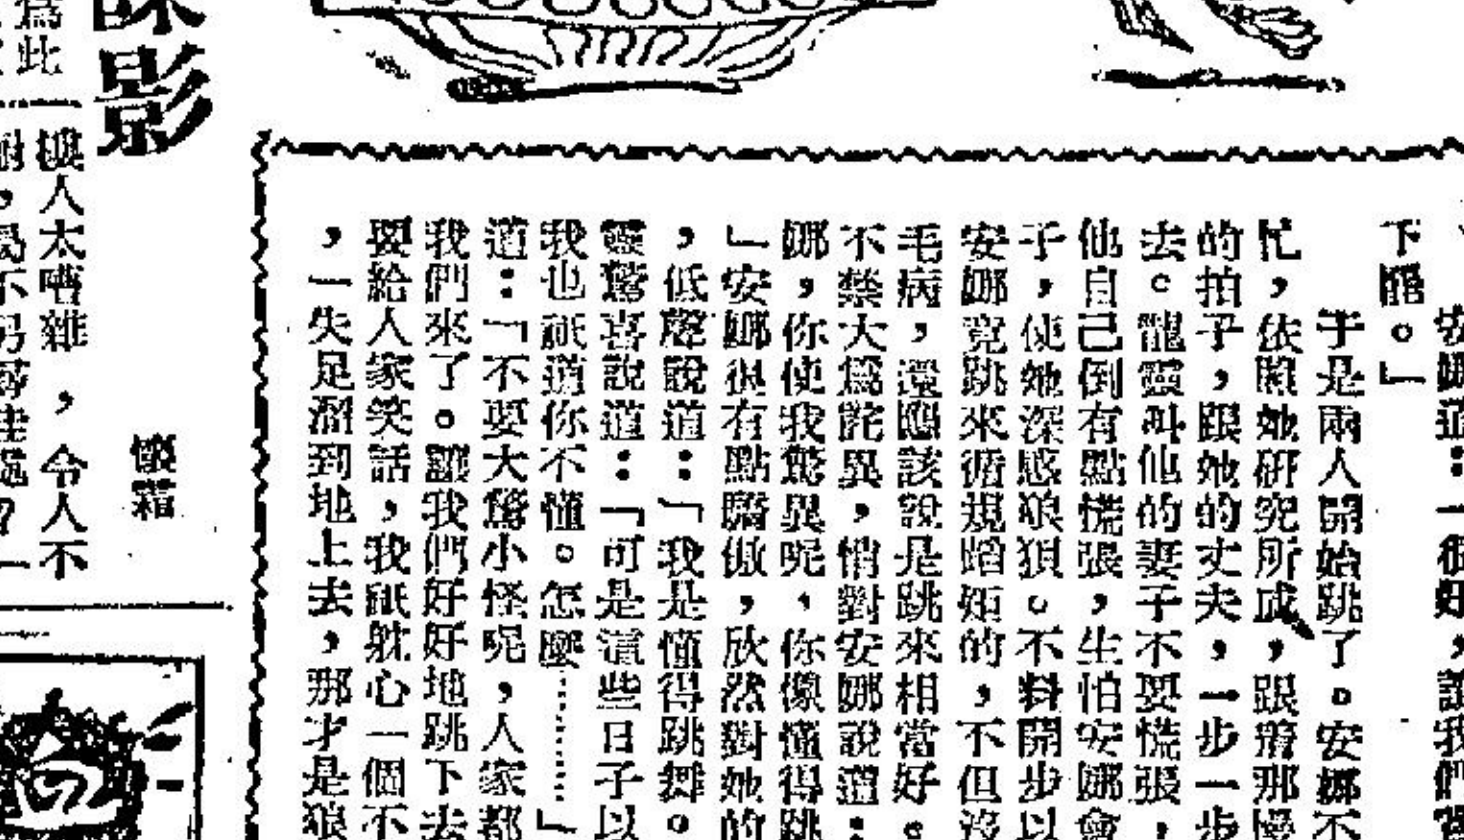 安娜道：「很好，讓我們
下罷。」
于是兩人開始跳了。安娜不
忙，依照她研究所成，跟着那慢
的拍子，跟她的丈夫，一步一步
去。龍靈叫他的妻子不要慌張，
他自己倒有點慌張，生怕安娜會
子，使她深感狼狽。不料開步以
安娜竟跳來循規蹈矩的，不但沒
毛病，還應該說是跳來相當好。
不禁大爲詫異，悄對安娜說道：
娜，你使我驚異呢，你像懂得跳
」安娜很有點驕傲，欣然對她的
，低聲說道：「我是懂得跳舞。
靈驚喜說道：「可是這些日子以
我也祇道你不懂。怎麼………」
道：「不要大驚小怪呢，人家都
我們來了。讓我們好好地跳下去
要給人家笑話，我祇躭心一個不
，一失足溜到地上去，那才是狼
影
懷霜
爲此
樓人太嘈雜，令人不
，曷不另尋佳處？